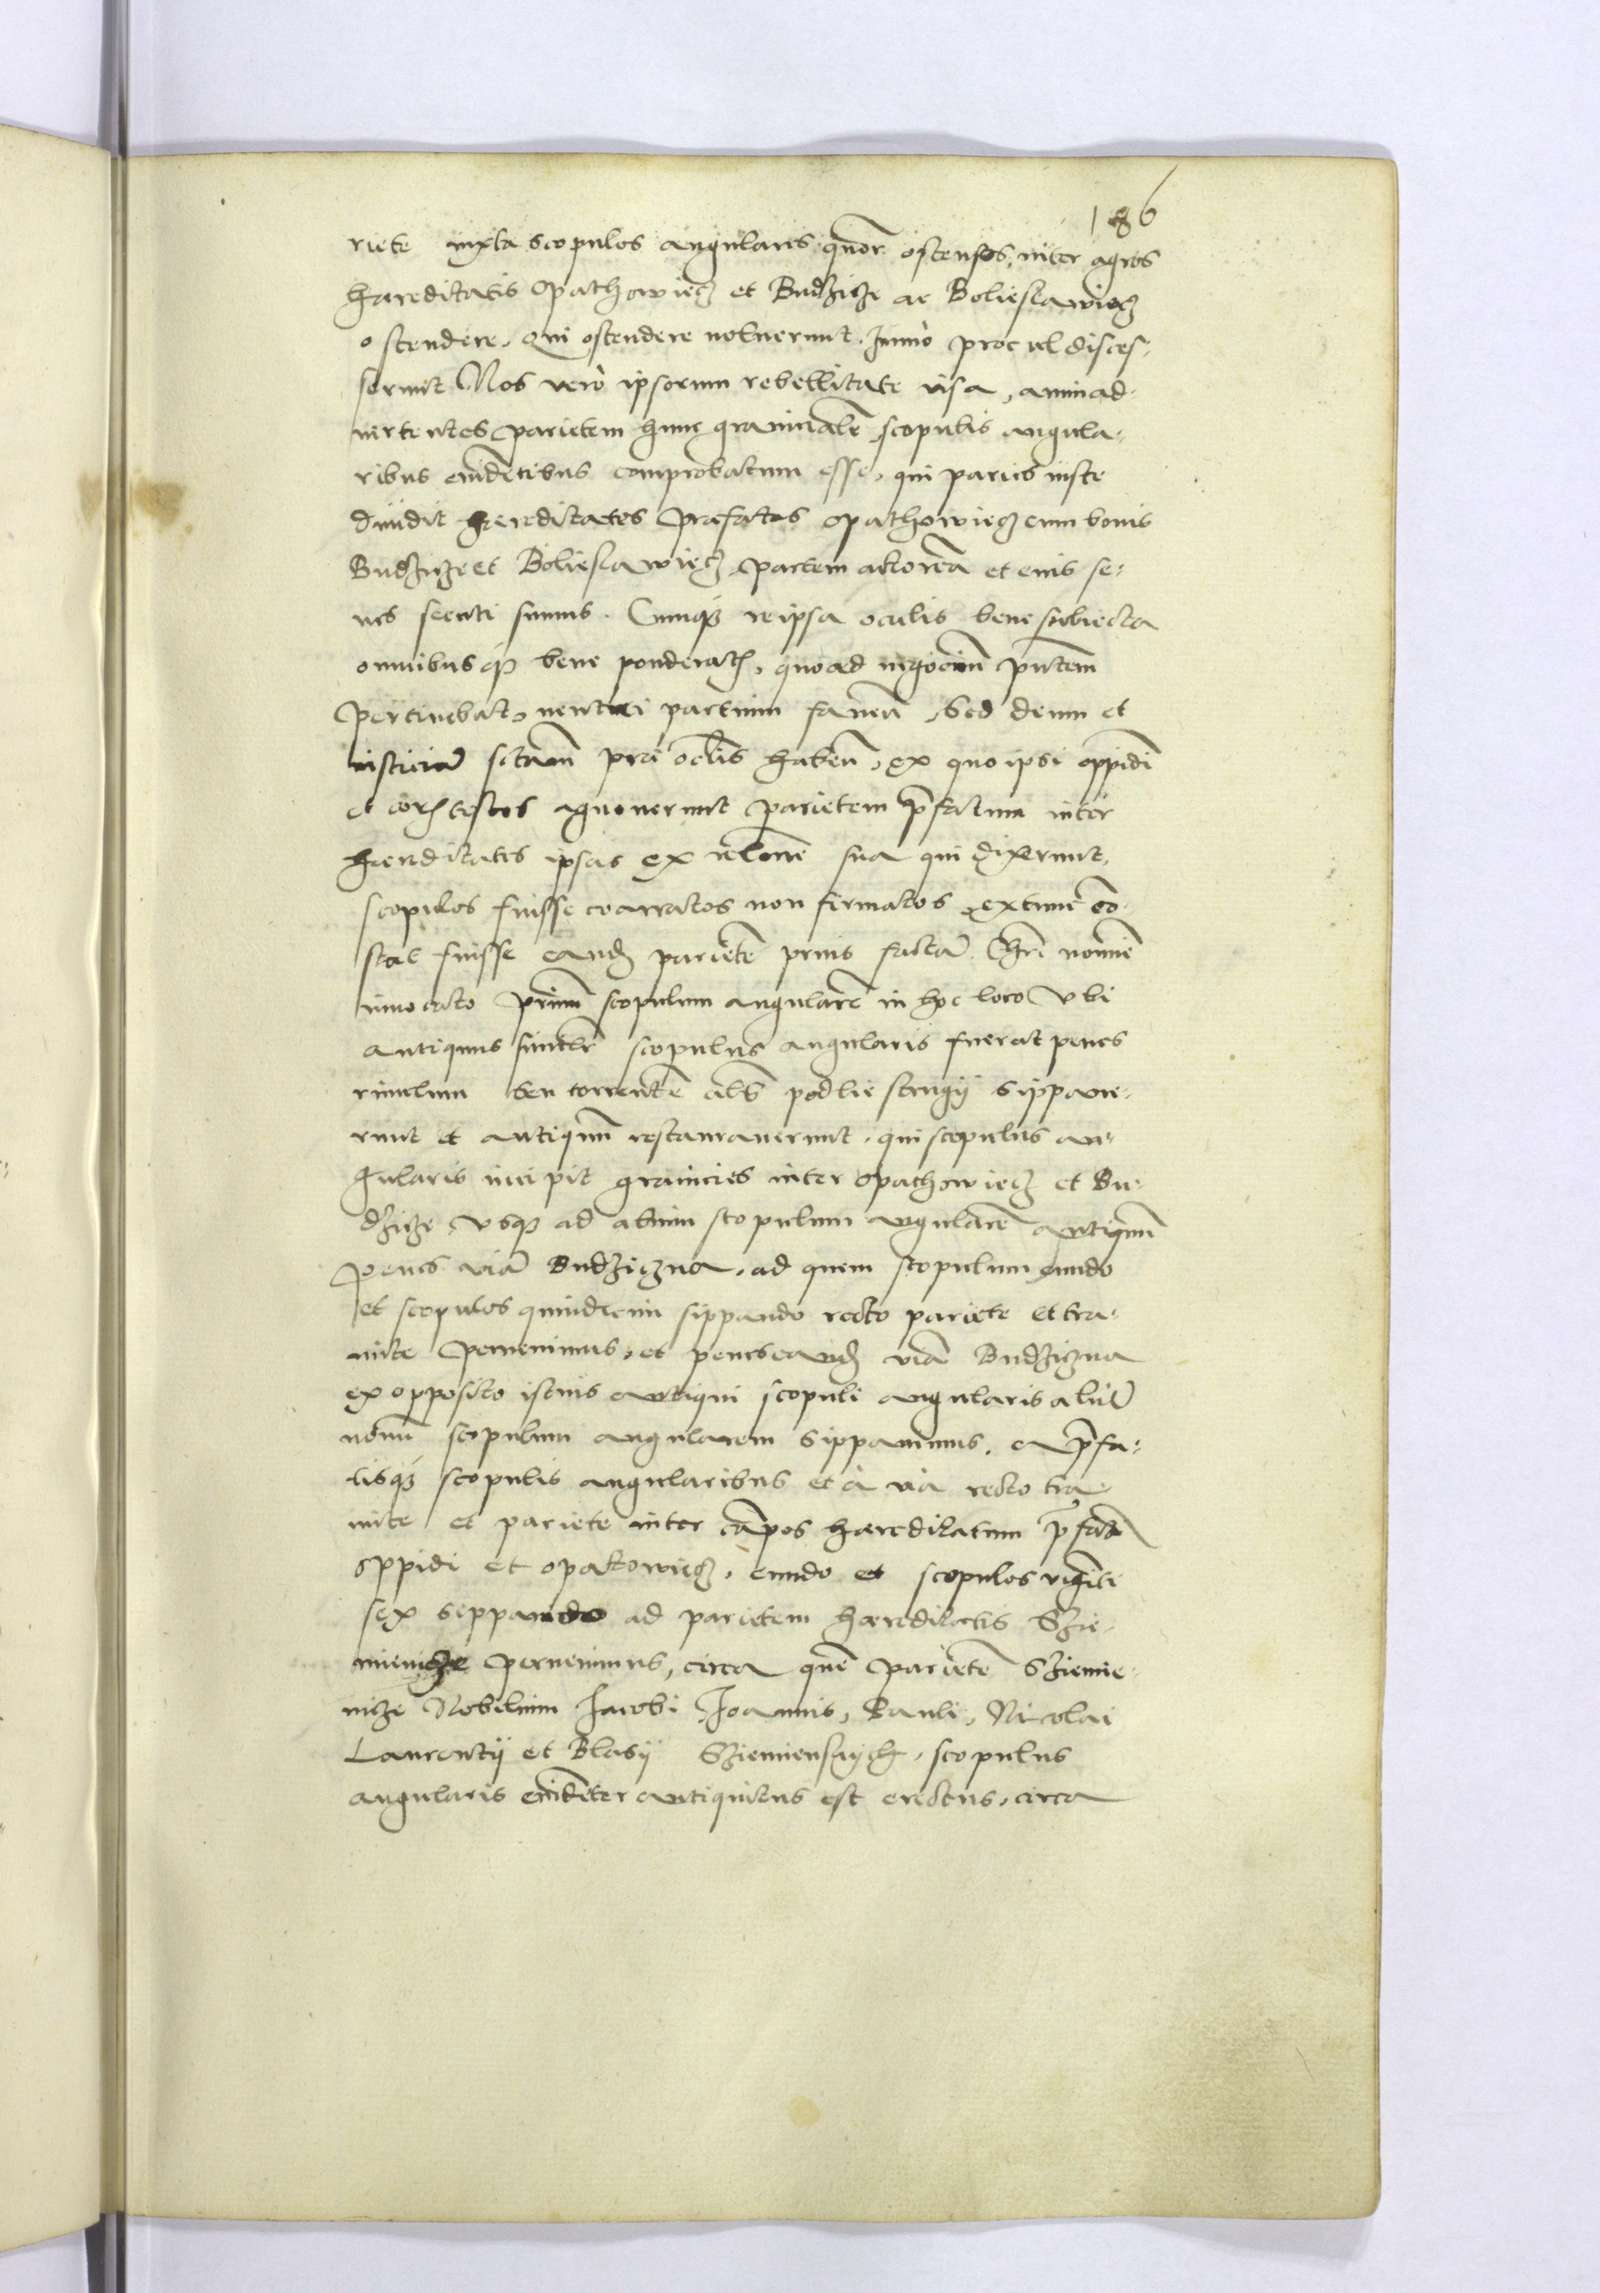 186
riete iuxta scopulos angulares quor ostensos, inter agros
haereditatis Opathowiecz et Budzicze ac Boliesławiecz
ostendere. Qui ostendere noluerunt. Immò procul disces-
serunt Nos verò ipsorum rebellitate visa, animad-
vertentes parietem hunc granicialē scopulis angula-
ribus evidētibus comprobatum esse, qui paries iuste
dividit haereditates praefatas Opathowiecz cum bonis
Budzicze et Boliesławiecz partem actoreā et eius se-
ries secuti sumus. Cumq̨ re ipsa oculis bene subiecta
omnibusq̨ bene ponderatis, quoad negociū pntem
pertinebat, neutri partium faven, Sed deum et
iusticiā sctam prae oclis haben, ex quo ipsi oppidi
et eorū testes agnoverunt parietem pfatum inter
haereditates ipsas ex relone sua qui dixerunt,
scopulos fuisse coarvatos non firmatos extunc co-
stat fuisse eandē parietē prius factā. Chri nomine
invocato primū scopulum angularē in hoc loco vbi
antiquus similr scopulus angularis fuerat penes
rivulum seu torrentē als podlie strugij sippave-
runt et antiquū restauraverunt, qui scopulus an-
gularis incipit granicies inter Opathowiecz et Bu-
dzicze, vsq̨ ad alium scopulum angularē antiquū
penes viā Budziczna, ad quem scopulum eundo
et scopulos quindecim sippando recto pariete et tra-
mite pervenimus, et penes eandē viā Budziczna
ex opposito istius antiqui scopuli angularis aliū
novū scopulum angularem sippavimus, a pfa-
tisq̨ scopulis angularibus et à via recto tra-
mite et pariete inter cāpos haereditatum pfat
oppidi et Opatowiecz, eundo et scopulos viginti
sex seppando ad parietem haereditatis Szie-
mienicze pervenimus, circa quē parietē Sziemie-
nicze Nobilium Jacobi Joannis, Pauli, Nicolai
Laurentij et Blasij Sziemienskych, scopulus
angularis evidēter antiquitus est erectus, circa